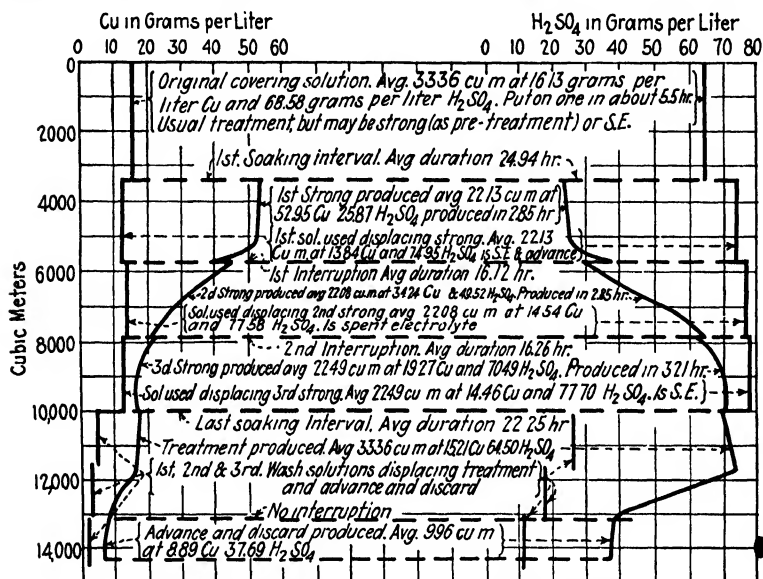 Cu in Grams per Liter
H2SO4 in Grams per Liter
0 10 20 30 40 50 60
0 10 20 30 40 50 60 70 80
Cubic Meters
0
2000
4000
6000
8000
10,000
12,000
14,000
Original covering solution. Avg. 3336 cu m at 16.13 grams per
liter Cu and 68.58 grams per liter H2SO4. Put on one in about 5.5 hr.
Usual treatment, but may be strong (as pre-treatment) or S.E.
1st. Soaking interval. Avg duration 24.94 hr.
1st Strong produced avg 22.13 cu m at
52.95 Cu 25.87 H2SO4 produced in 2.85 hr
1st. sol. used displacing strong. Avg. 22.13
Cu m at 13.84 Cu and 74.95 H2SO4 is S.E. & advance
1st Interruption Avg duration 16.12 hr.
2d Strong produced avg 22.08 cu m at 34.24 Cu & 49.52 H2SO4. Produced in 2.85 hr.
Sol. used displacing 2nd strong avg 22.08 cu m at 14.54 Cu
and 77.58 H2SO4. Is spent electrolyte
2nd Interruption. Avg duration 16.26 hr.
3d Strong produced avg 22.49 cu m at 19.27 Cu and 70.49 H2SO4. Produced in 3.21 hr.
Sol used displacing 3rd strong. Avg 22.49 cu m at 14.46 Cu and 77.70 H2SO4. Is S.E.
Last soaking Interval. Avg duration 22.25 hr
Treatment produced. Avg 3336 cu m at 15.21 Cu 64.50 H2SO4
1st, 2nd & 3rd. Wash solutions displacing treatment
and advance and discard
No interruption
Advance and discard produced. Avg. 996 cu m
at 8.89 Cu 37.69 H2SO4